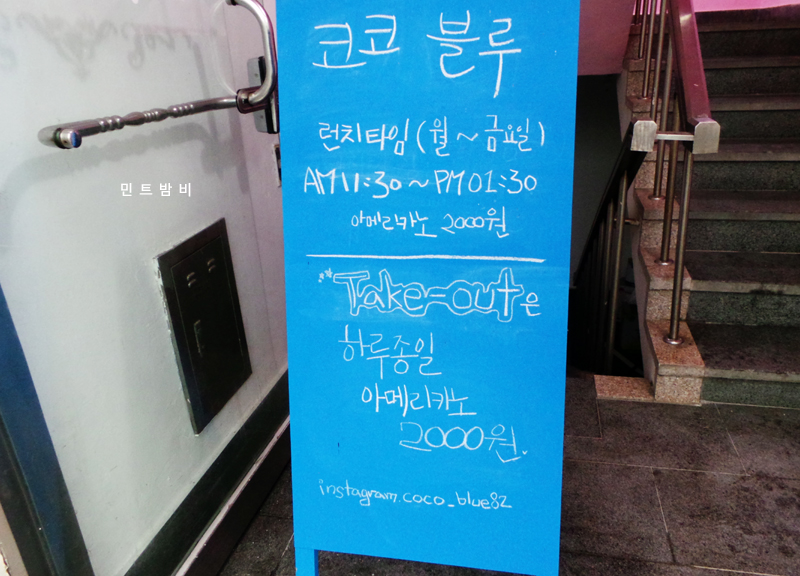 코코 블루
런치타임 (월 ~ 금요일)
AM 11:30 ~ PM 01:30
아메리카노 2000원
Take-out은
하루종일
아메리카노
2000원.
instagram.coco_blue82
민트밤비